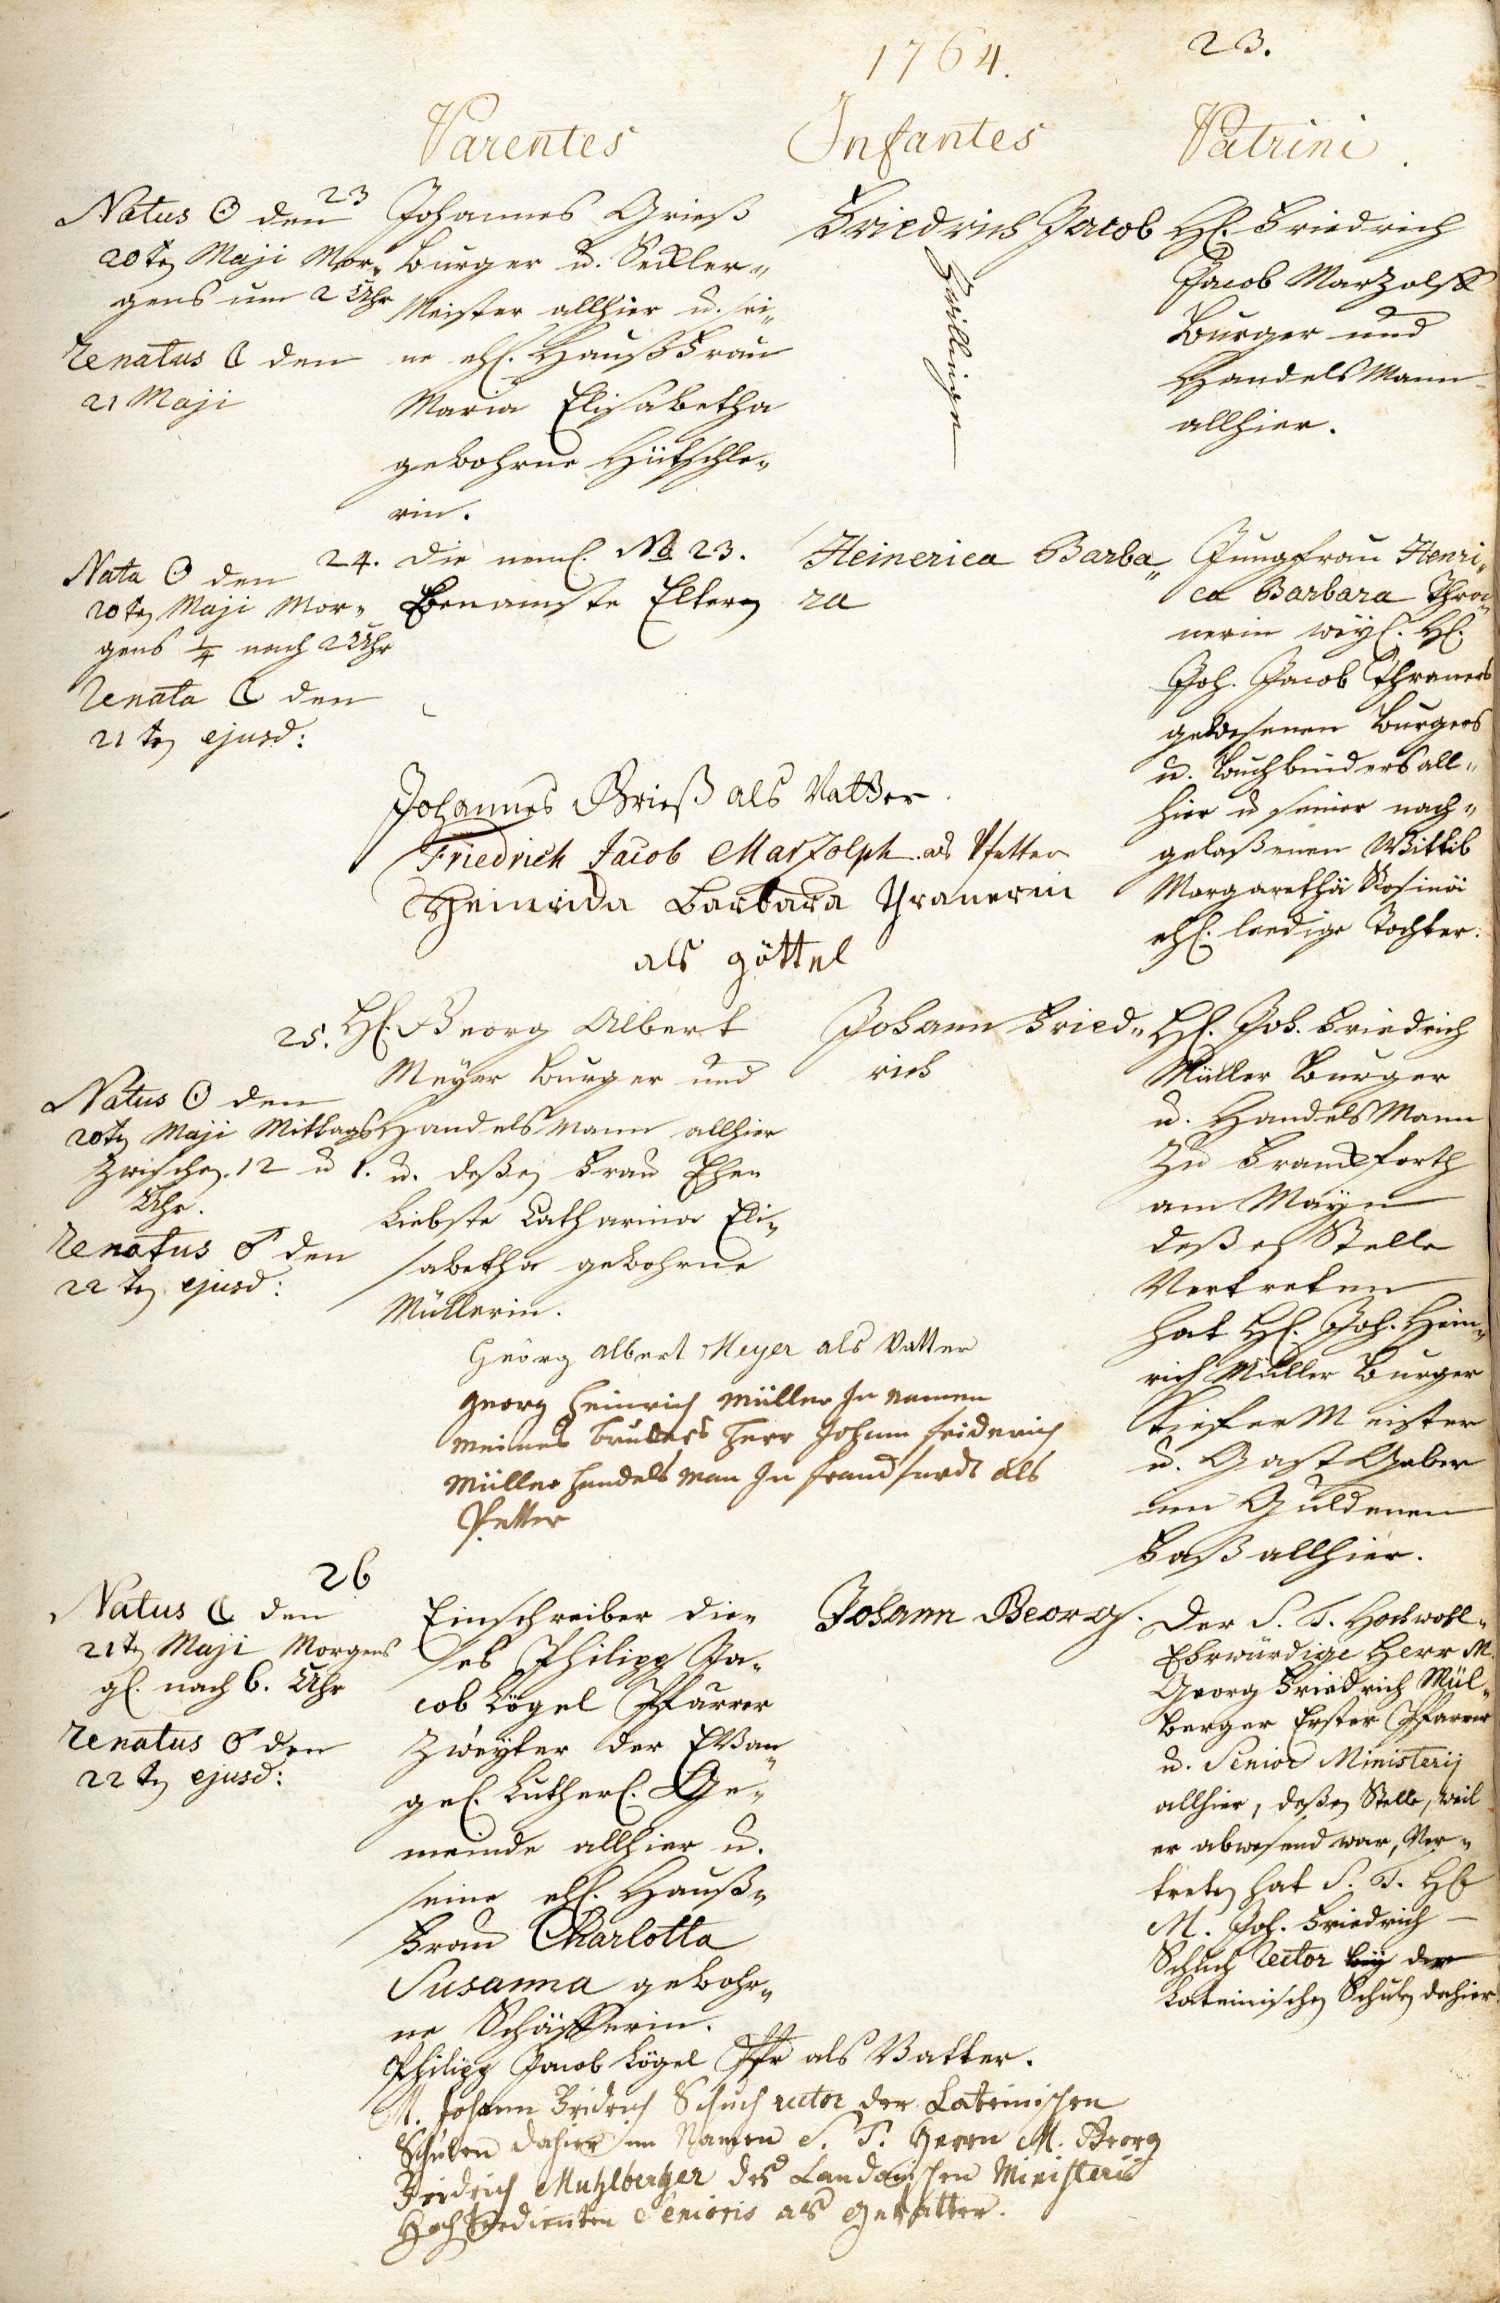 1764.
23.
Parentes
Infantes
Patrini.
23
Natus ☉ den
20ten Maji Mor-
gens um 2 Uhr
Renatus ☾ den
21 Maji
Johannes Grieß
Burger u. Seckler-
Meister allhier u. sei-
ne ehl. Hauß Frau
Maria Elisabetha
gebohrne Hütschle-
rin.
Friedrich Jacob
Zwillinge
H. Friedrich
Jacob Marzolff
Burger und
Handels Mann
allhier.
24.
Nata ☉ den
20ten Maji Mor-
gens 1/4 nach 2 Uhr
Renata ☾ den
21ten ejusd:
die neml. No 23.
benamste Eltern
Heinerica Barba-
ra
Jungfrau Henri-
ca Barbara Thra-
nerin weyl. H.
Joh. Jacob Thraners
gewesenen Burgers
u. Buchbinders all-
hier u seiner nach-
gelaßenen Wittib
Margarethä Rosinä
ehl. ledige Tochter.
Johannes Grieß als Vatter
Friedrich Jacob Marzolph als Pfetter
Heinrica Barbara Thranerin
als göttel
25.
Natus ☉ den
20ten Maji Mittags
zwischen 12 u 1.
Uhr.
Renatus ♂ den
22ten ejusd:
H. Georg Albert
Meyer Burger und
Handels Mann allhier
u. deßen Frau Ehe
Liebste Catharina Eli-
sabetha gebohrne
Müllerin.
Johann Fried-
rich
H. Joh. Friedrich
Müller Burger
u. Handels Mann
zu Franckforth
am Mayn
deßen Stelle
Vertreten
hat H. Joh. Hein-
rich Müller Burger
Kiefer Meister
u. Gast Geber
im Guldenen
Faß allhier.
Georg albert Meyer als Vatter
georg heinrich müller In namen
meines bruders herr Johann friderich
müller handels man In franckfurdt als
Petter
26
Natus ☾ den
21ten Maji Morgens
gl. nach 6. Uhr
Renatus ♂ den
22ten ejusd:
Einschreiber die-
ses Philipp Ja-
cob Lögel Pfarrer
Zweyter der Evan-
gel. Lutherl. Ge-
meinde allhier u.
seine ehl. Hauß-
Frau Charlotta
Susanna gebohr-
ne Schäfferin.
Johann Georg.
Der S. T. Hochwohl-
Ehrwürdige Herr M.
Georg Friedrich Mül-
berger Erster Pfarrer
u. Senior Ministerij
allhier, deßen Stelle, weil
er abwesend war, Ver-
treten hat S. T. H.
M. Joh. Friedrich
Schuch Rector bey der
Lateinischen Schulen dahier
Philipp Jacob Lögel Pfr als Vatter.
M. Johann Fridrich Schuch rector der Lateinischen
Schulen dahier im Namen S. T. Herrn M. Georg
Fridrich Muhlberger des Landauischen Ministerii
Hochverdienten Senioris als Gevatter.